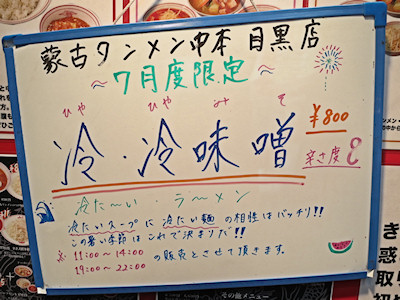 蒙古タンメン中本 目黒店
～7月度限定～
ひや ひや み そ
冷・冷味噌
¥800
辛さ度 8
冷た〜い・ラ〜メン
冷たいスープに冷たい麺の相性はバッチリ!!
この暑い季節はこれで決まりだ!!
※ 11:00～14:00
19:00～22:00
の販売とさせて頂きます。
その他メニュー